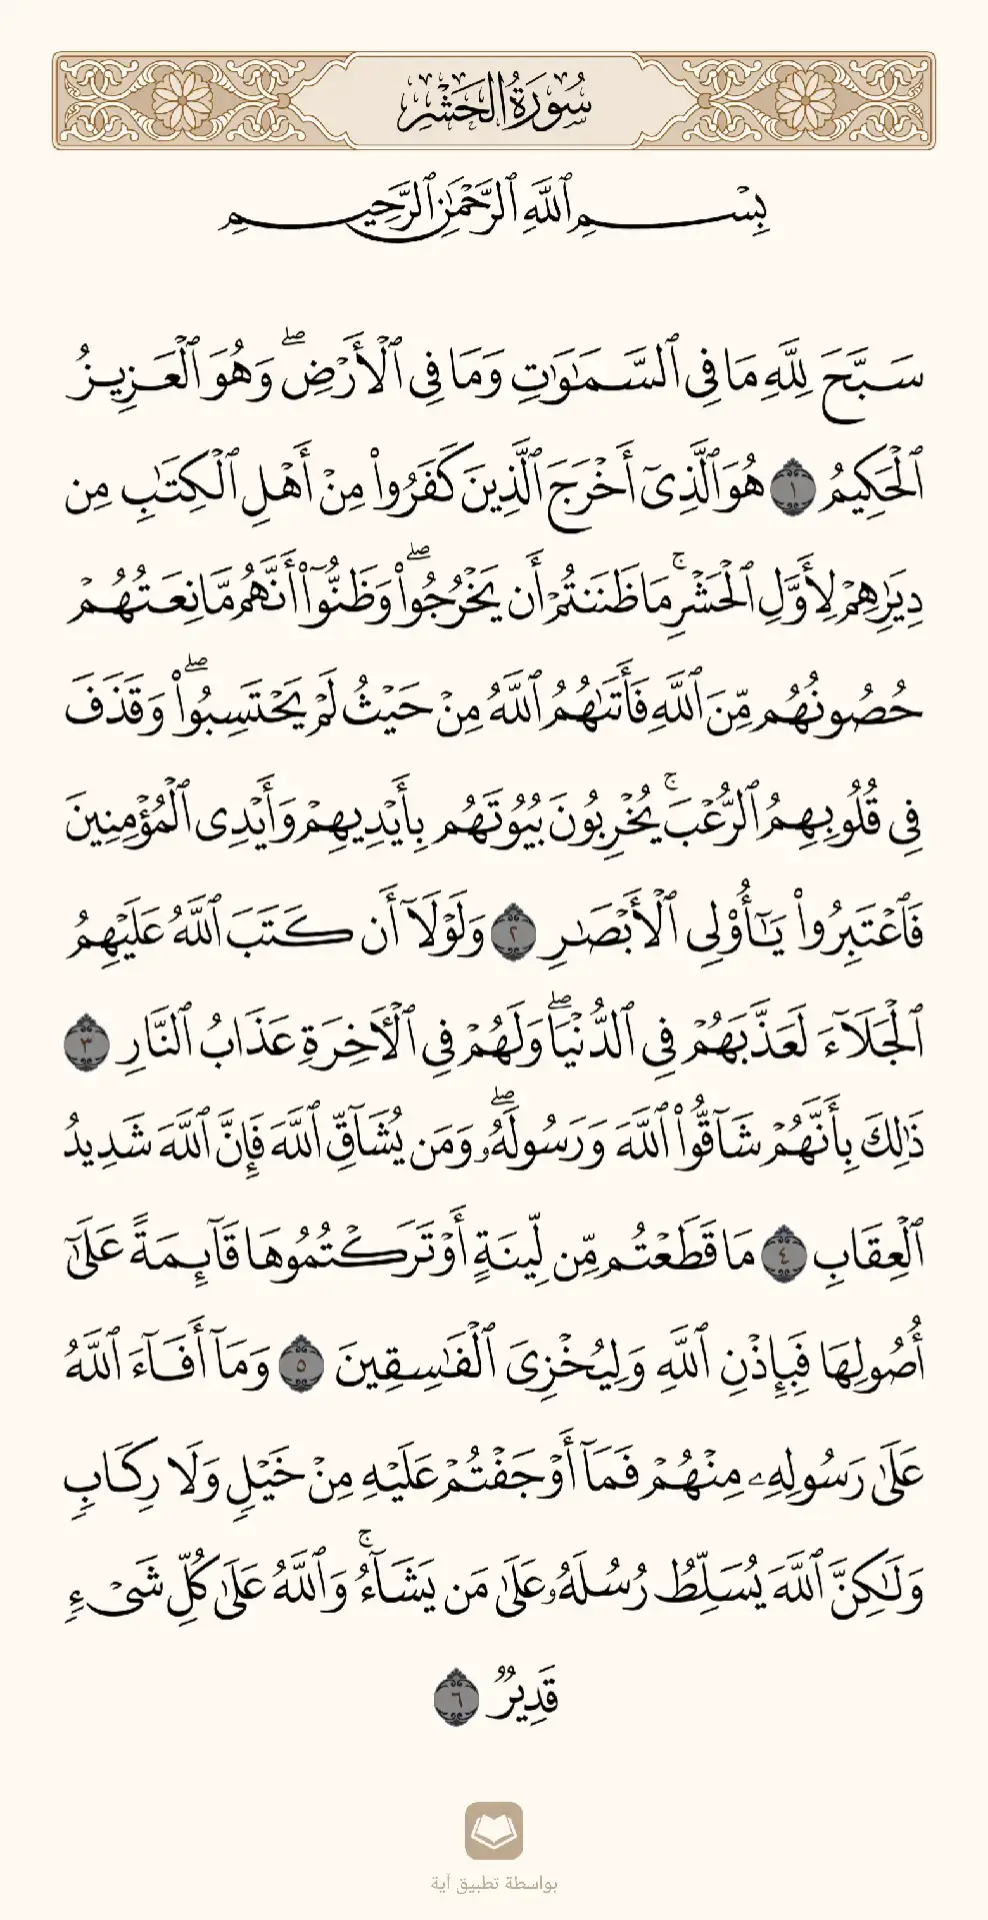 سُورَةُ الْحَشْرِ
بِسْمِ ٱللَّهِ ٱلرَّحْمَٰنِ ٱلرَّحِيمِ
سَبَّحَ لِلَّهِ مَا فِي ٱلسَّمَٰوَٰتِ وَمَا فِي ٱلْأَرْضِۖ وَهُوَ ٱلْعَزِيزُ
ٱلْحَكِيمُ ١ هُوَ ٱلَّذِيٓ أَخْرَجَ ٱلَّذِينَ كَفَرُوا۟ مِنْ أَهْلِ ٱلْكِتَٰبِ مِن
دِيَٰرِهِمْ لِأَوَّلِ ٱلْحَشْرِۚ مَا ظَنَنتُمْ أَن يَخْرُجُوا۟ۖ وَظَنُّوٓا۟ أَنَّهُم مَّانِعَتُهُمْ
حُصُونُهُم مِّنَ ٱللَّهِ فَأَتَىٰهُمُ ٱللَّهُ مِنْ حَيْثُ لَمْ يَحْتَسِبُوا۟ۖ وَقَذَفَ
فِي قُلُوبِهِمُ ٱلرُّعْبَۚ يُخْرِبُونَ بُيُوتَهُم بِأَيْدِيهِمْ وَأَيْدِي ٱلْمُؤْمِنِينَ
فَٱعْتَبِرُوا۟ يَٰٓأُو۟لِي ٱلْأَبْصَٰرِ ٢ وَلَوْلَآ أَن كَتَبَ ٱللَّهُ عَلَيْهِمُ
ٱلْجَلَآءَ لَعَذَّبَهُمْ فِي ٱلدُّنْيَاۖ وَلَهُمْ فِي ٱلْأٓخِرَةِ عَذَابُ ٱلنَّارِ ٣
ذَٰلِكَ بِأَنَّهُمْ شَآقُّوا۟ ٱللَّهَ وَرَسُولَهُۥۖ وَمَن يُشَآقِّ ٱللَّهَ فَإِنَّ ٱللَّهَ شَدِيدُ
ٱلْعِقَابِ ٤ مَا قَطَعْتُم مِّن لِّينَةٍ أَوْ تَرَكْتُمُوهَا قَآئِمَةً عَلَىٰٓ
أُصُولِهَا فَبِإِذْنِ ٱللَّهِ وَلِيُخْزِيَ ٱلْفَٰسِقِينَ ٥ وَمَآ أَفَآءَ ٱللَّهُ
عَلَىٰ رَسُولِهِۦ مِنْهُمْ فَمَآ أَوْجَفْتُمْ عَلَيْهِ مِنْ خَيْلٍ وَلَا رِكَابٍ
وَلَٰكِنَّ ٱللَّهَ يُسَلِّطُ رُسُلَهُۥ عَلَىٰ مَن يَشَآءُۚ وَٱللَّهُ عَلَىٰ كُلِّ شَيْءٍ
قَدِيرٌ ٦
بواسطة تطبيق آية